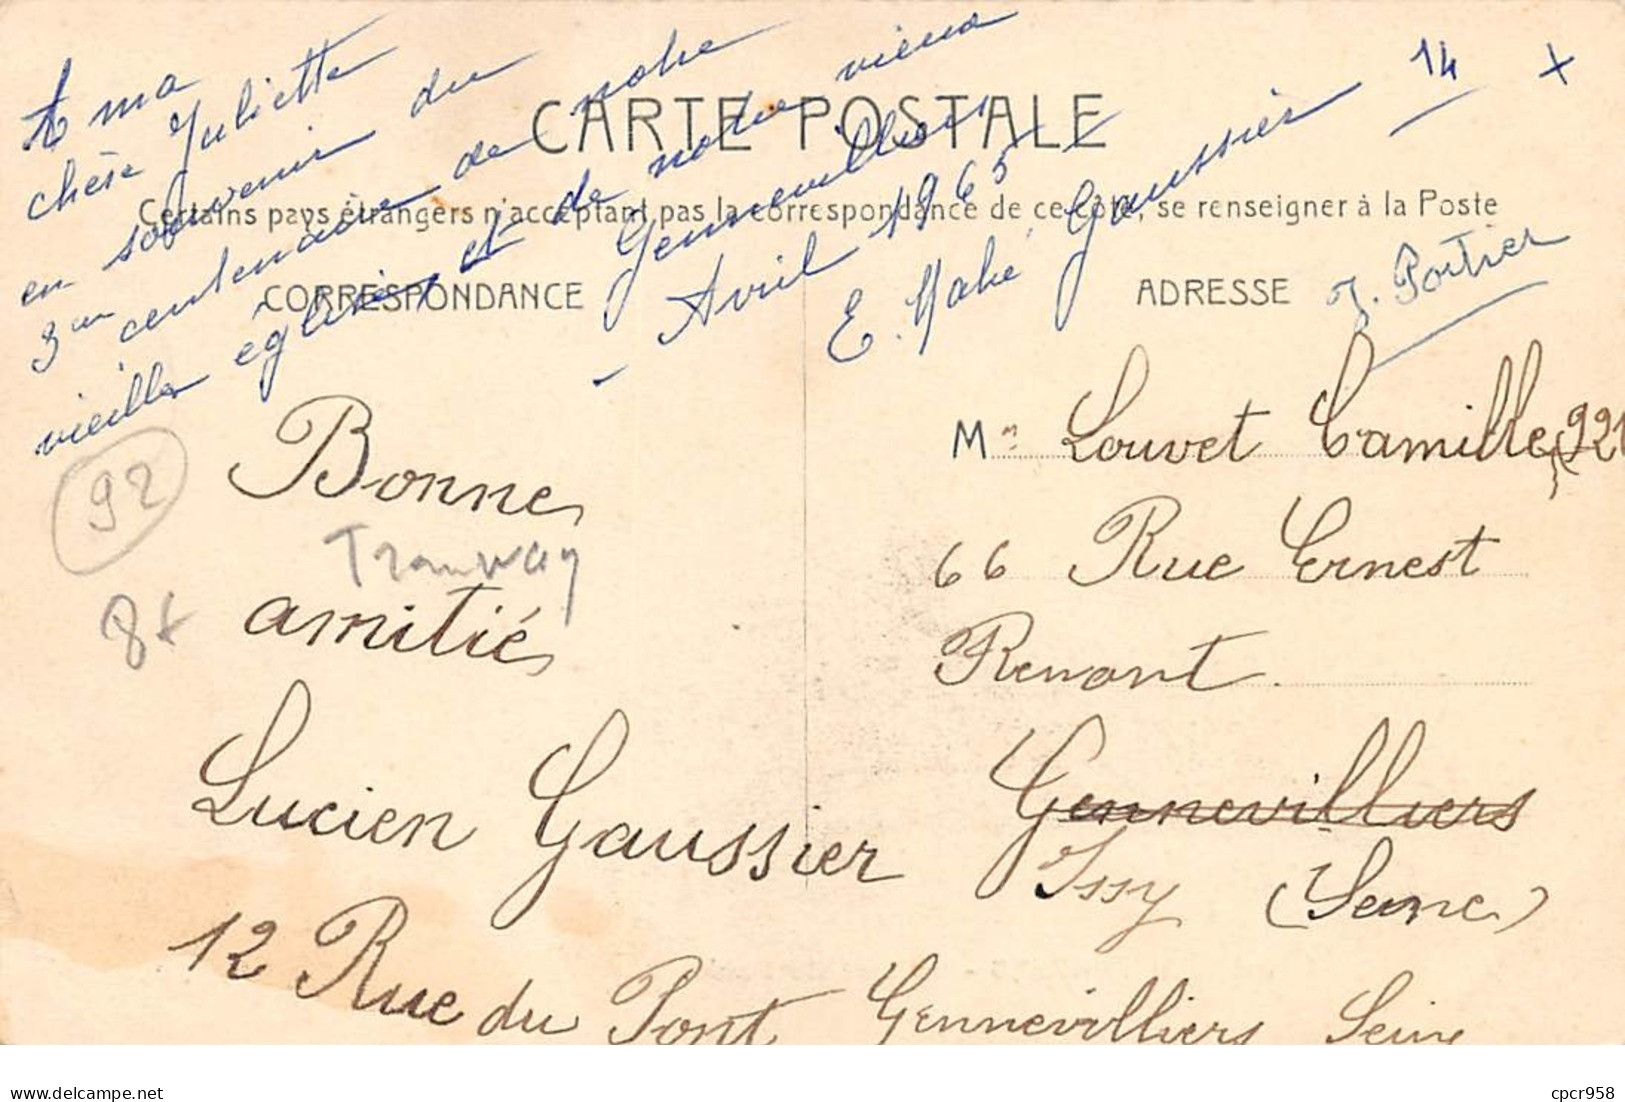 A ma
chère Juliette
en souvenir du
3em centenaire de notre
vieille église et de notre vieux
Gennevilliers
- Avril 1965 -
E. Mahé Gaussier
14 +
CARTE POSTALE
Certains pays étrangers n'acceptant pas la correspondance de ce côté, se renseigner à la Poste
CORRESPONDANCE
ADRESSE
J. Portier
92
Bonne
Tramway
amitié
8€
Lucien Gaussier
12 Rue du Pont Gennevilliers Seine
Mr Louvet Camille (921
66 Rue Ernest
Renant.
Gennevilliers
Issy (Seine)
cpcr958